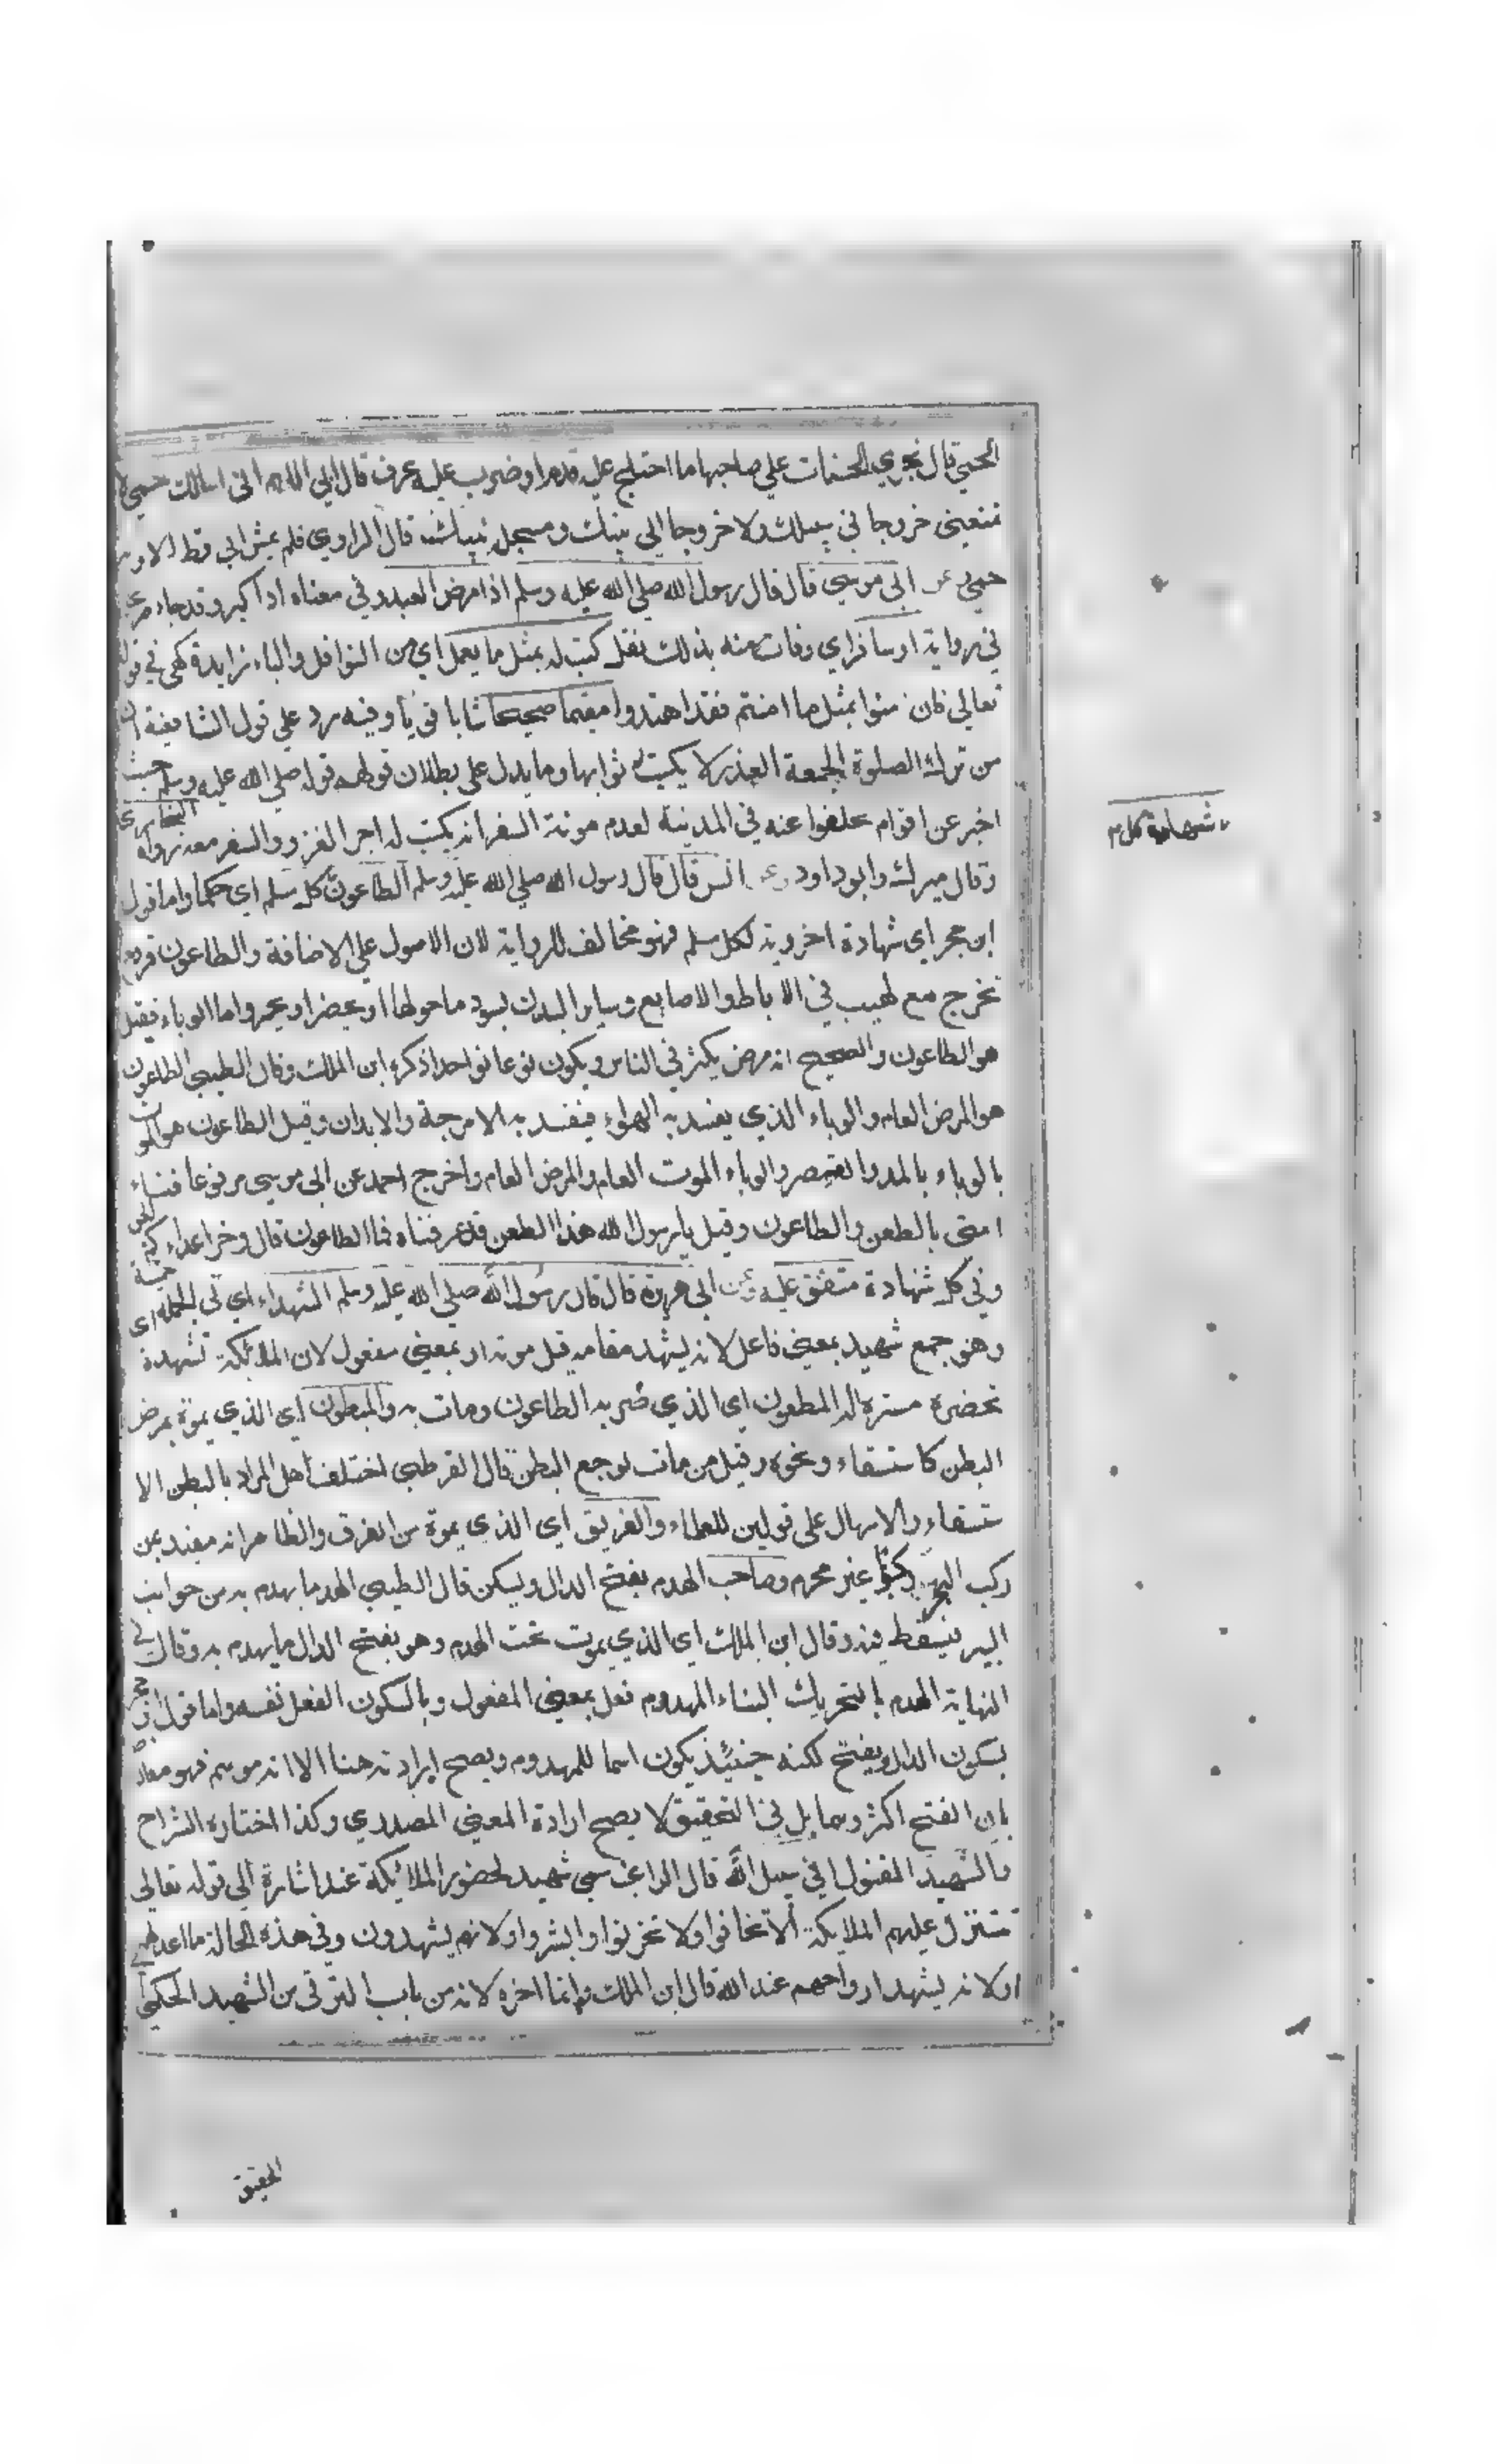 الحمى قال تجري الحسنات على صاحبها ما اختلج عليه قدم او ضرب عليه عرق قال ابي اللهم اني اسالك حمى لا
تمنعني خروجا في سبيلك ولا خروجا الى بيتك ومسجد نبيك قال الراوي فلم يمس ابي قط الا وبه
حمى عن ابي موسى قال قال رسول الله صلي الله عليه وسلم اذا مرض العبد وفي معناه اذا كبر وقد جاء
في رواية او سافر اي وفات منه بذلك نفل كتب له بمثل ما يعمل اي من النوافل والباء زايدة كهي في قوله
تعالي فان امنوا بمثل ما امنتم فقد اهتدوا مقيما صحيحا شابا قويا وفيه رد علي قول الشافعية ان
من ترك الصلوة الجمعة العذر لا يكتب ثوابها ومما يدل على بطلان قولهم قوله صلي الله عليه وسلم حيث
اخبر عن اقوام تخلفوا عنه في المدينة لعدم مونة السفر انه يكتب له اجر الغزو والسفر معه رواه البخاري
وقال ميرك وابو داود وعن انس قال قال رسول الله صلي الله عليه وسلم الطاعون كل مسلم اي حكما واما قول
شهادة كل م
ابن حجر اي شهادة اخروية لكل مسلم فهو مخالف للرواية لان الاصول علي الاضافة والطاعون قروح
تخرج مع لهيب في الاباط والاصابع وساير البدن يسود ما حولها او يخضر او يحمر واما الوباء فقيل
هو الطاعون والصحيح انه مرض يكثر في الناس ويكون نوعا نواحدا ذكره ابن الملك وقال الطيبي الطاعون
هو المرض العام والوباء الذي يفسد به الهواء فيفسد به الامزجة والابدان وقيل الطاعون هو الموت
بالوباء بالمد والقصر والوباء الموت العام والمرض العام واخرج احمد عن ابي موسى مرفوعا فناء
امتي بالطعن والطاعون وقيل يا رسول الله هذا الطعن قد عرفناه فما الطاعون قال وخز اعداءكم الجن
وفي كل شهادة متفق عليه وعن ابي هريرة قال قال رسول الله صلي الله عليه وسلم الشهداء اي في الجملة خمسة اي
وهو جمع شهيد بمعنى فاعل لانه يشهد مقامه قبل موته او بمعنى مفعول لان الملائكة تشهده
تحضره مسرة له المطعون اي الذي ضربه الطاعون ومات به والمبطون اي الذي يموة بمرض
البطن كاستسقاء ونحوه وقيل من مات لوجع البطن قال القرطبي اختلف هل المراد بالبطن الا
ستسقاء والاسهال على قولين للعلماء والغريق اي الذي يموة من الغرق والظاهر انه مقيد بمن
ركب البحر ركوبا غير محرم وصاحب الهدم بفتح الدال ويسكن قال الطيبي الهدم ما يهدم به من جوانب
البير فيسقط فيه وقال ابن الملك اي الذي يموت تحت الهدم وهو بفتح الدال ما يهدم به وقال في
النهاية الهدم بالتحريك البناء المهدوم فعل بمعنى المفعول وبالسكون الفعل نفسه واما قول ابن حجر
بسكون الدال ويفتح لكنه حينئذ يكون اسما للمهدوم ويصح ايرادته هنا الا انه موهم فهو معارض
بان الفتح اكثر وبما بل في التحقيق لا يصح ارادة المعنى المصدري وكذا اختاره الشراح
والشهيد المقتول في سبيل الله قال الراغب سمي شهيد لحضور الملائكة عنده اشارة الى قوله تعالي
تتنزل عليهم الملايكة ألا تخافوا ولا تحزنوا وابشروا ولانهم يشهدون وفي هذه الحالة ما اعد لهم
اولانه يشهد ارواحهم عند الله قال ابن الملك وانما اخره لانه من باب الترقي من الشهيد الحكمي
الحقيق